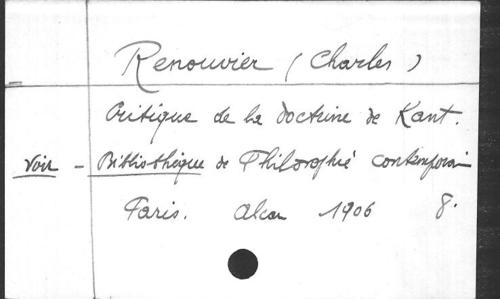 Renouvier (Charles)
Critique de la doctrine de Kant.
Voir - Bibliothèque de Philosophie contemporai
Paris. Alcan 1906 8.